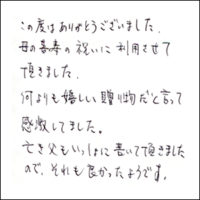 この度はありがとうございました。
母の喜寿の祝いに利用させて
頂きました。
何よりも嬉しい贈り物だと言って
感激してました。
亡き父もいっしょに書いて頂きました
ので、それも良かったようです。